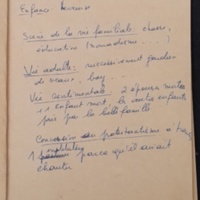 Enfance heureuse
Suite de la vie familiale : chasse,
éducation
Vie adulte : successivement gardien
de vaches, boy...
Vie sentimentale : 2 épouses mortes
1 enfant mort, les autres enfants
pris par la belle famille
Conversion au protestantisme à
1. parce qu'il aimait
chanter